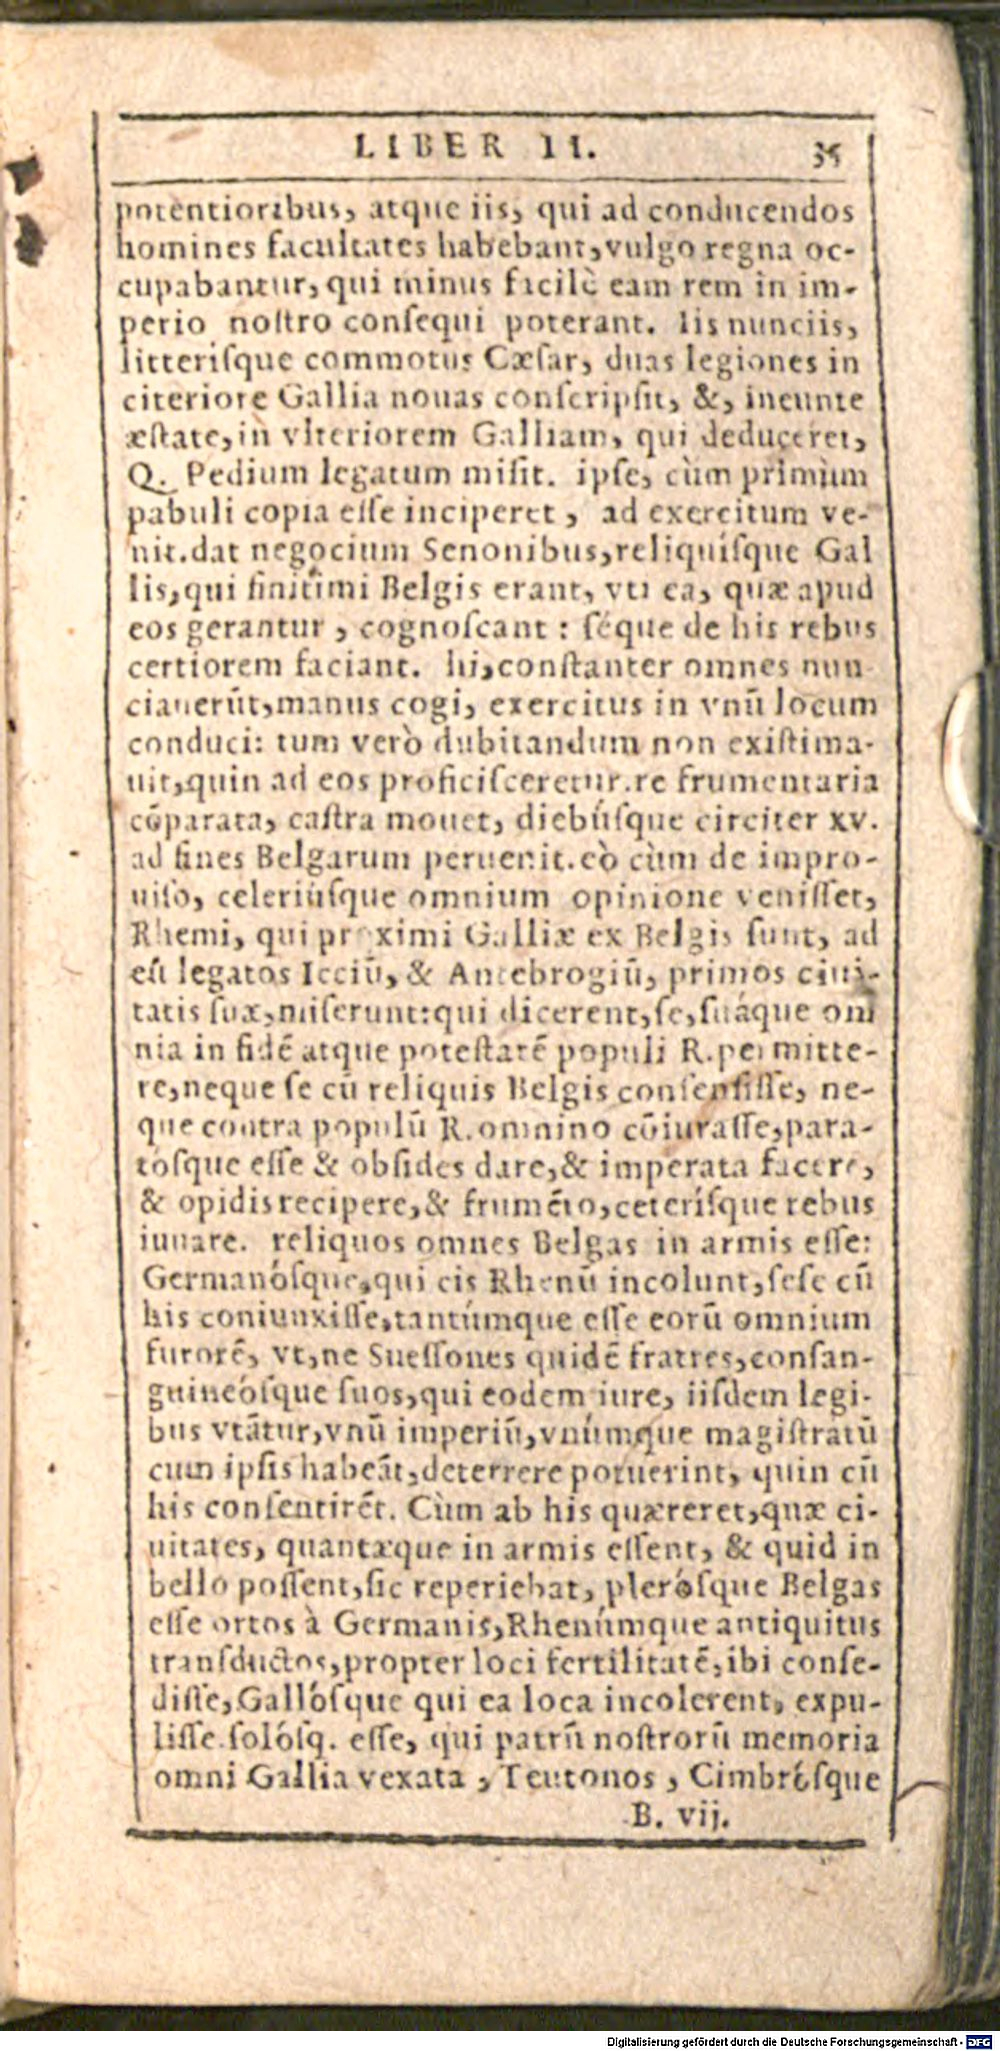 LIBER II. 35
potentioribus, atque iis, qui ad conducendos
homines facultates habebant, vulgo regna oc-
cupabantur, qui minus facilè eam rem in im-
perio noſtro conſequi poterant. Iis nunciis,
litteriſque commotus Cæſar, duas legiones in
citeriore Gallia nouas conſcripſit, &, ineunte
æſtate, in vlteriorem Galliam, qui deduceret,
Q. Pedium legatum miſit. ipſe, cùm primùm
pabuli copia eſſe inciperet, ad exercitum ve-
nit. dat negocium Senonibus, reliquíſque Gal
lis, qui finitimi Belgis erant, vti ea, quæ apud
eos gerantur, cognoſcant: ſéque de his rebus
certiorem faciant. hi, conſtanter omnes nun
ciauerūt, manus cogi, exercitus in vnū locum
conduci: tum verò dubitandum non exiſtima-
uit, quin ad eos proficiſceretur. re frumentaria
cōparata, caſtra mouet, diebúſque circiter xv.
ad fines Belgarum peruenit. eò cùm de impro-
uiſo, celeriúſque omnium opinione veniſſet,
Rhemi, qui proximi Galliæ ex Belgis ſunt, ad
eū legatos Icciū, & Antebrogiū, primos ciui-
tatis ſuæ, miſerunt: qui dicerent, ſe, ſuáque om
nia in fidē atque poteſtatē populi R. permitte-
re, neque ſe cū reliquis Belgis conſenſiſſe, ne-
que contra populū R. omnino cōiuraſſe, para-
tóſque eſſe & obſides dare, & imperata facere,
& opidis recipere, & frumēto, ceteríſque rebus
iuuare. reliquos omnes Belgas in armis eſſe:
Germanóſque, qui cis Rhenū incolunt, ſeſe cū
his coniunxiſſe, tantúmque eſſe eorū omnium
furorē, vt, ne Sueſſones quidē fratres, conſan-
guineóſque ſuos, qui eodem iure, iiſdem legi-
bus vtātur, vnū imperiū, vnúmque magiſtratū
cum ipſis habeāt, deterrere potuerint, quin cū
his conſentirēt. Cùm ab his quæreret, quæ ci-
uitates, quantæque in armis eſſent, & quid in
bello poſſent, ſic reperiebat, pleróſque Belgas
eſſe ortos à Germanis, Rhenúmque antiquitus
tranſductos, propter loci fertilitatē, ibi conſe-
diſſe, Gallóſque qui ea loca incolerent, expu-
liſſe. ſolóſq. eſſe, qui patrū noſtrorū memoria
omni Gallia vexata, Teutonos, Cimbróſque
B. vij.
Digitalisierung gefördert durch die Deutsche Forschungsgemeinschaft - DFG